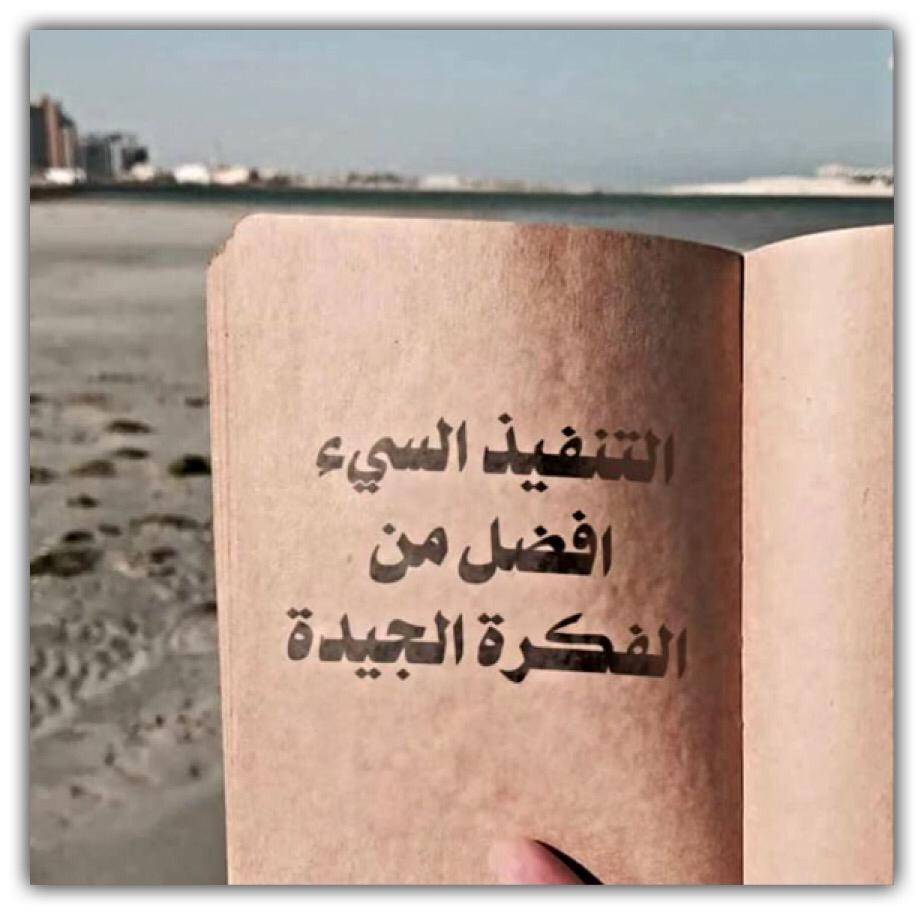 التنفيذ السيء
افضل من
الفكرة الجيدة